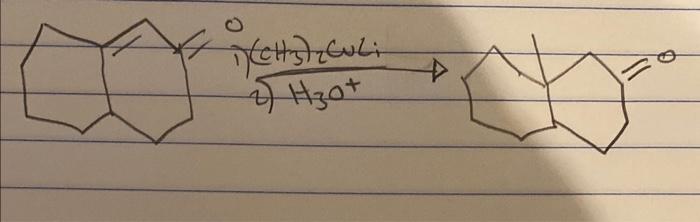 O
1) (CH3)2CuLi
2) H3O+
O